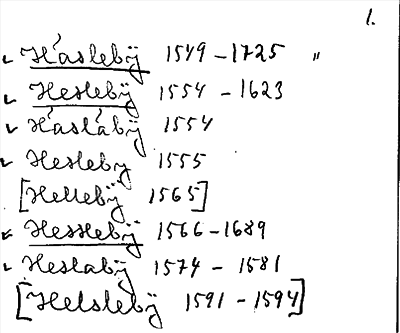 1.
✓ Háslebÿ 1549 – 1725 "
✓ Heslebÿ 1554 – 1623
✓ Háslábÿ 1554
✓ Heslebÿ 1555
[Hellebÿ 1565]
✓ Hesslebÿ 1566 – 1689
✓ Heslabÿ 1574 – 1581
[Helslebÿ 1591 – 1594]